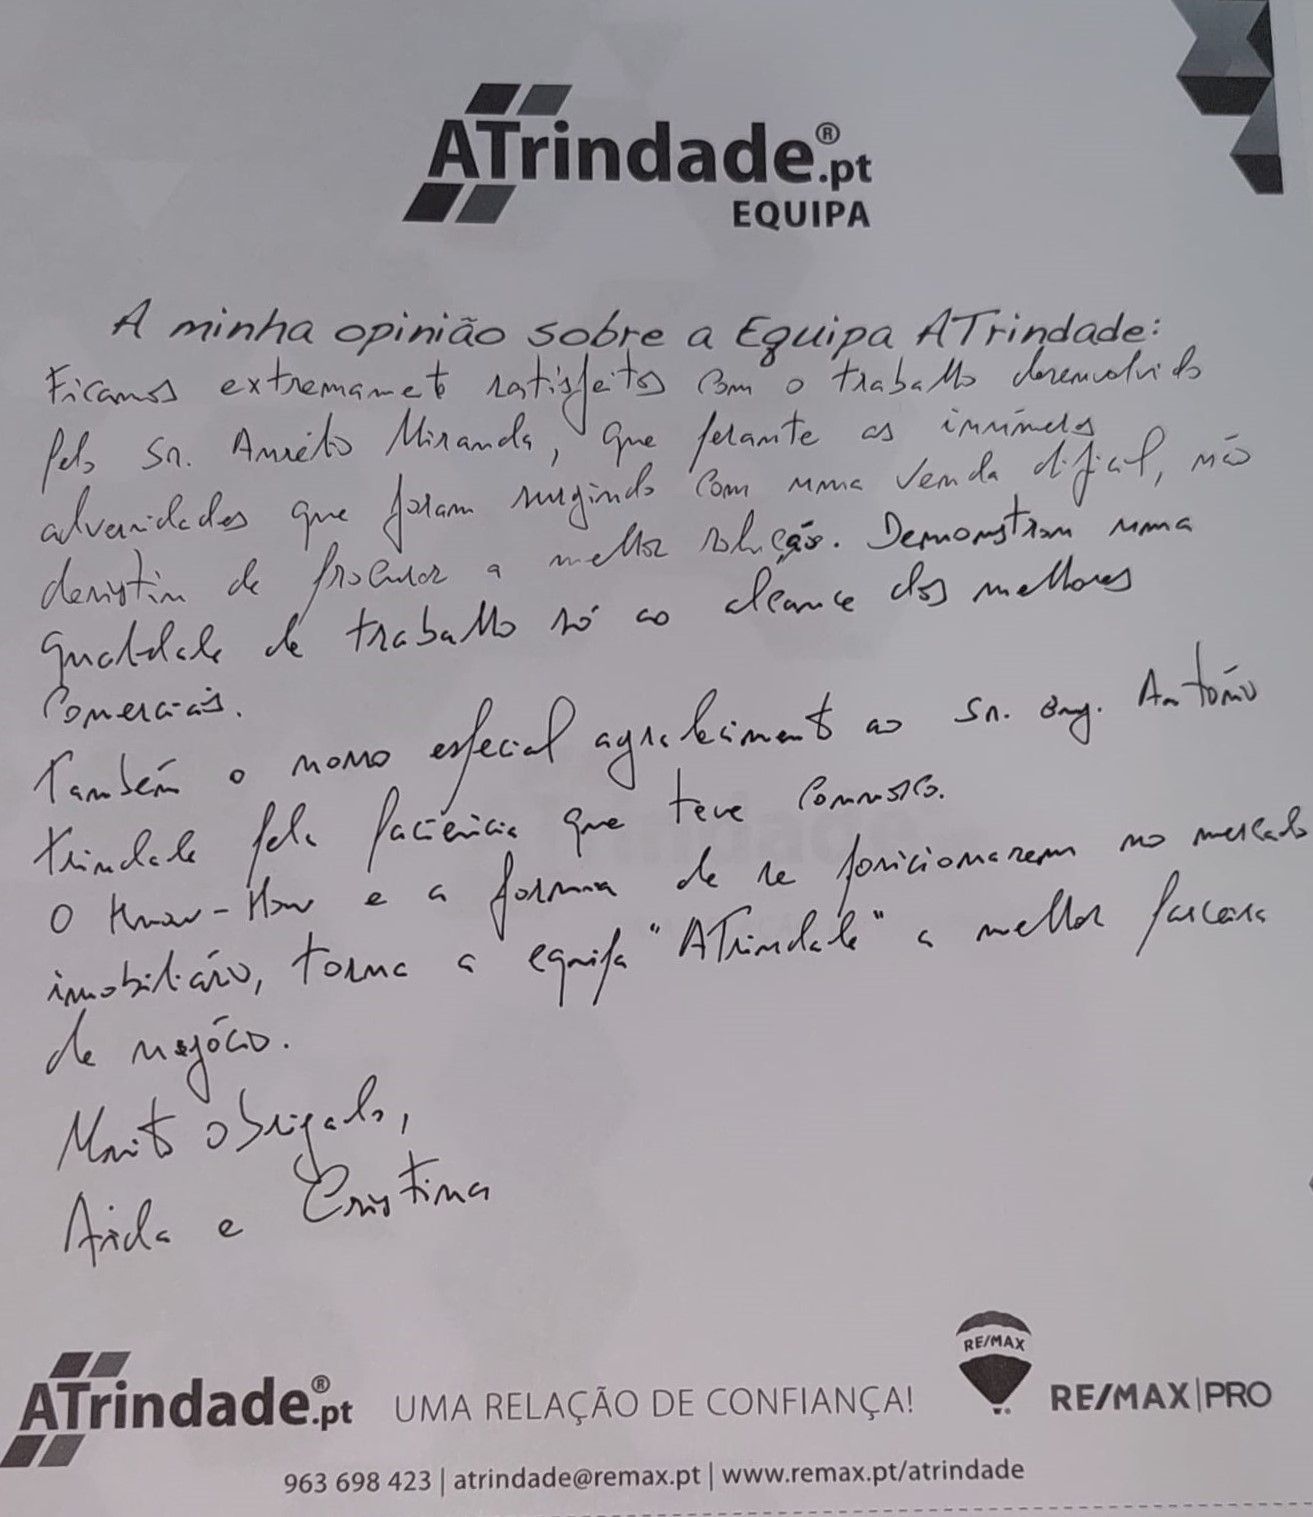 ATrindade.pt®
EQUIPA
A minha opinião sobre a Equipa ATrindade:
Ficamos extremamet satisfeitos com o trabalho desenvolvido
pelo Sr. Aniceto Miranda, que perante as inúmeras
adversidades que foram surgindo com uma venda dificil, não
desistiu de procurar a melhor solução. Demonstram uma
qualidade de trabalho só ao alcance dos melhores
comerciais.
Também o nosso especial agradecimento ao Sr. Eng. António
Trindade pela paciência que teve connosco.
O Know-How e a forma de se posicionarem no mercado
imobiliário, torna a equipa "ATrindade" a melhor parceira
de negócio.
Muito obrigado,
Aida e Cristina
ATrindade.pt® UMA RELAÇÃO DE CONFIANÇA! RE/MAX RE/MAX|PRO
963 698 423 | atrindade@remax.pt | www.remax.pt/atrindade